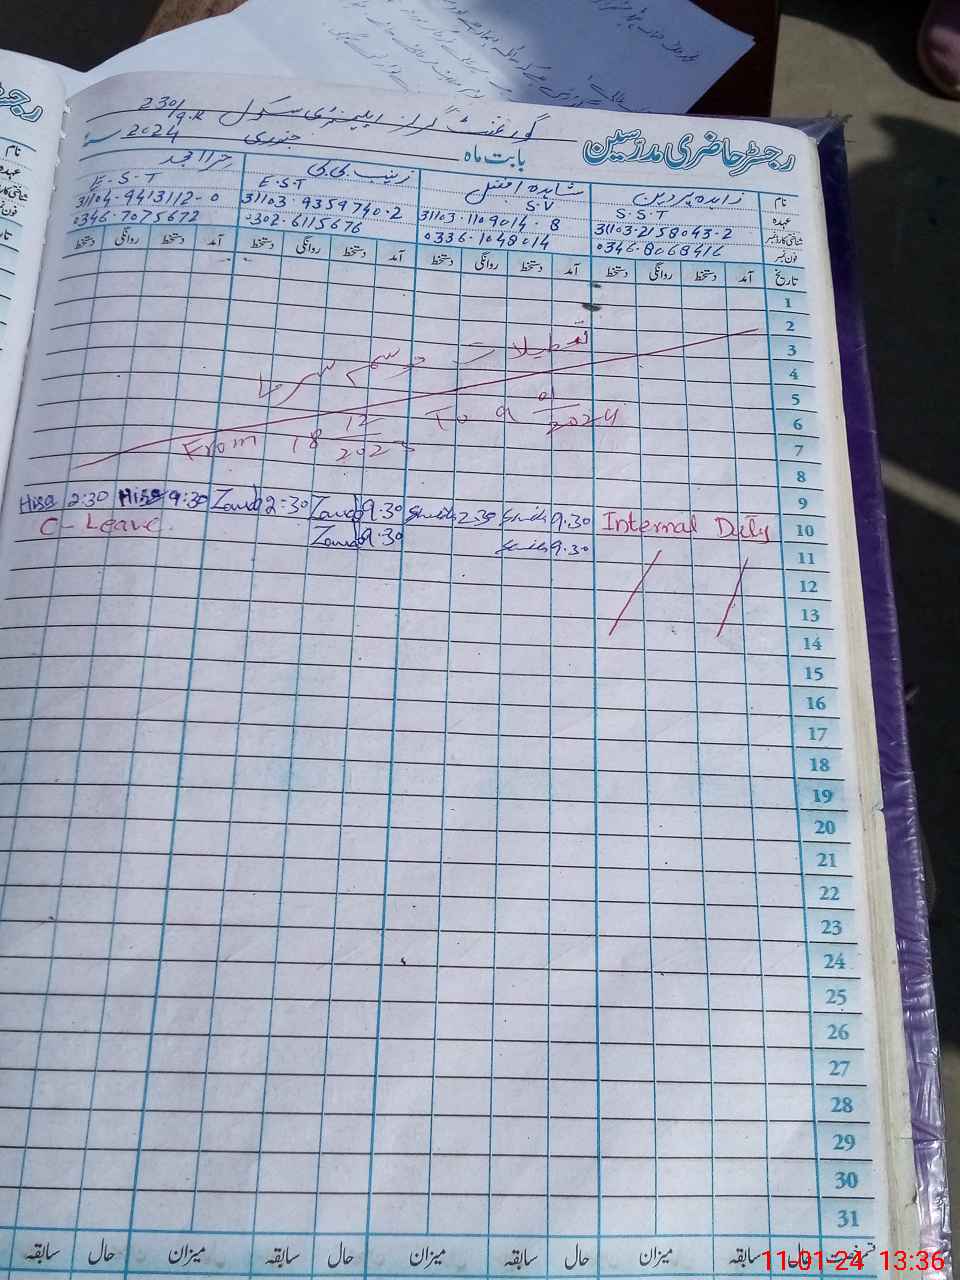 رجسٹر حاضری مدرسین
گورنمنٹ گرلز ایلیمنٹری سکول 230/9.R
بابت ماہ جنوری 2024
نام زاہدہ پروین شاہدہ افضل زینب بی بی حرا امجد
عہدہ S.S.T S.V E.S.T E.S.T
شناختی کارڈ نمبر 31103-2158043-2 31103-1109014-8 31103-9359740-2 31104-9413112-0
فون نمبر 0346-8068416 0336-1048014 0302-6115676 0346-7075672
تاریخ آمد دستخط روانگی دستخط آمد دستخط روانگی دستخط آمد دستخط روانگی دستخط آمد دستخط روانگی دستخط
1
2
3
تعطیلات موسم سرما
4
5
From 18 12/2023 To 9 01/2024
6
7
8
9
10 Internal Duty 9.30 2.30 9.30 2:30 9:30 2:30
11 9.30 9.30 C-Leave
12
13
14
15
16
17
18
19
20
21
22
23
24
25
26
27
28
29
30
31
قسم رخصت حال سابقہ میزان حال سابقہ میزان حال سابقہ میزان حال سابقہ
11-01-24 13:36